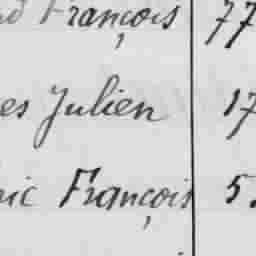 François 77
es Julien 17
ric François 5